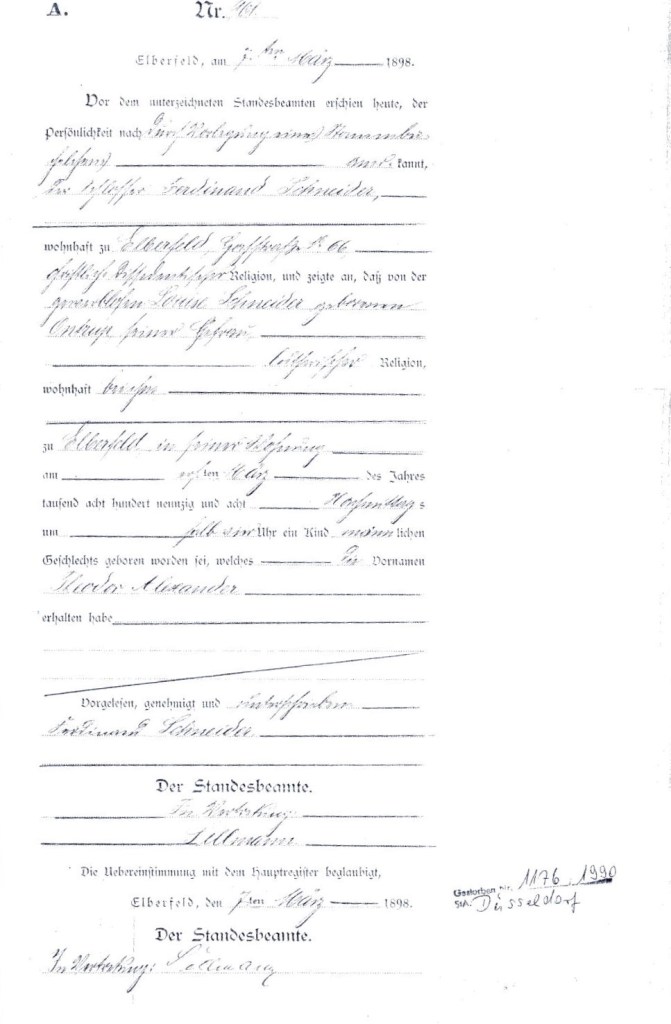 A.
Nr. 961
Elberfeld, am 7ten März 1898.
Vor dem unterzeichneten Standesbeamten erschien heute, der
Persönlichkeit nach durch Vorlegung eines Stammbu
kannt,
der Schlosser Ferdinand Schneider,
wohnhaft zu Elberfeld, 66
Religion, und zeigte an, daß von der
gewerblosen Louise Schneider geborenen
seiner Ehefrau
lutherischer Religion,
wohnhaft bei ihm
zu Elberfeld in seiner Wohnung
am ersten März des Jahres
tausend acht hundert neunzig und acht Nachmittags
um halb vier Uhr ein Kind männlichen
Geschlechts geboren worden sei, welches die Vornamen
Theodor Alexander
erhalten habe
Vorgelesen, genehmigt und unterschrieben
Ferdinand Schneider
Der Standesbeamte.
In Vertretung:
Die Uebereinstimmung mit dem Hauptregister beglaubigt,
Elberfeld, den 7ten März 1898.
Der Standesbeamte.
In Vertretung:
Gestorben Nr. 1176. 1990
StA. Düsseldorf